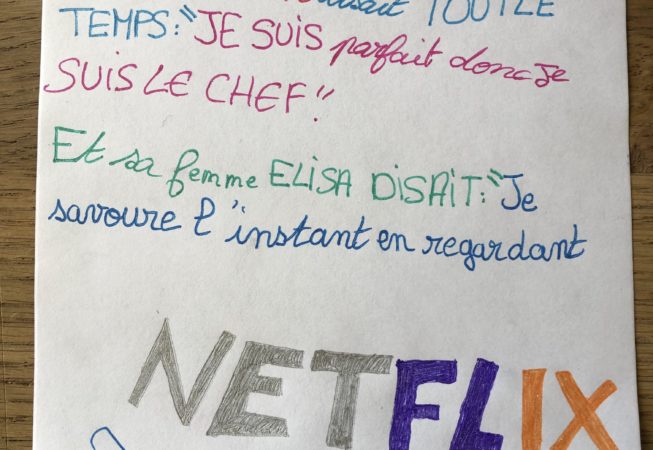 disait TOUT LE
TEMPS: "JE SUIS parfait donc je
SUIS LE CHEF"!
Et sa femme ELISA DISAIT: "Je
savoure l'instant en regardant
NETFLIX